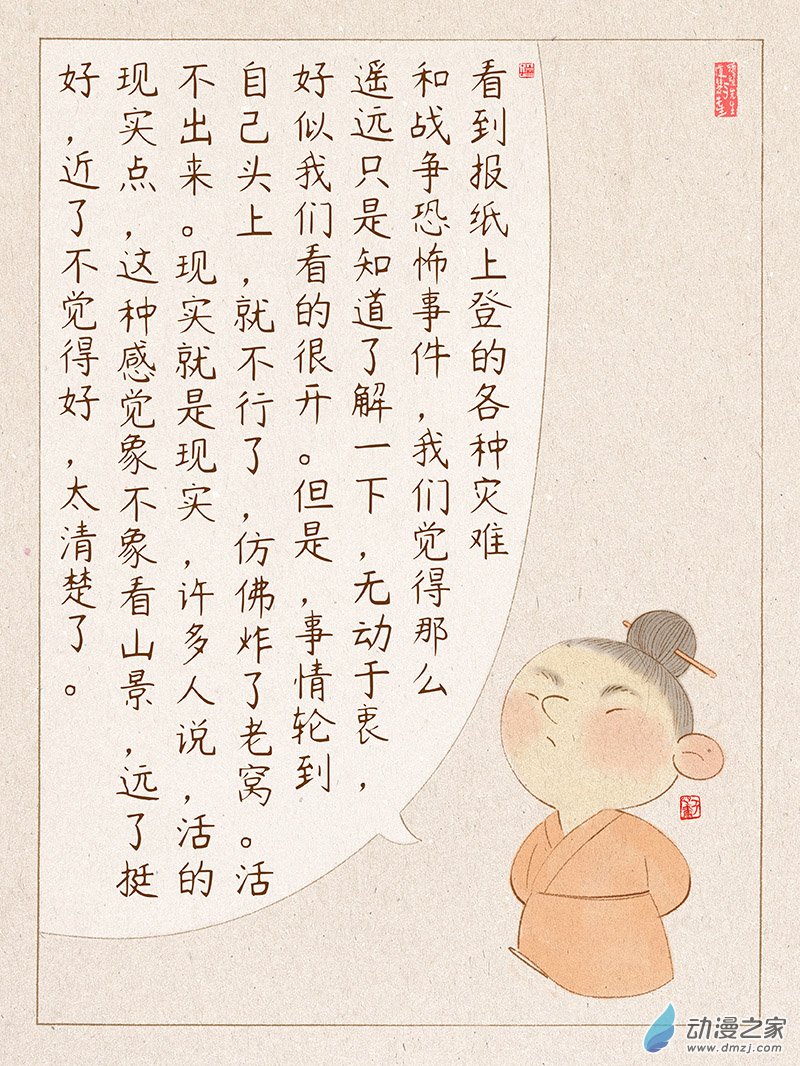 看到报纸上登的各种灾难
和战争恐怖事件，我们觉得那么
遥远只是知道了解一下，无动于衷，
好似我们看的很开。但是，事情轮到
自己头上，就不行了，仿佛炸了老窝。活
不出来。现实就是现实，许多人说，活的
现实点，这种感觉象不象看山景，远了挺
好，近了不觉得好，太清楚了。
动漫之家
www.dmzj.com